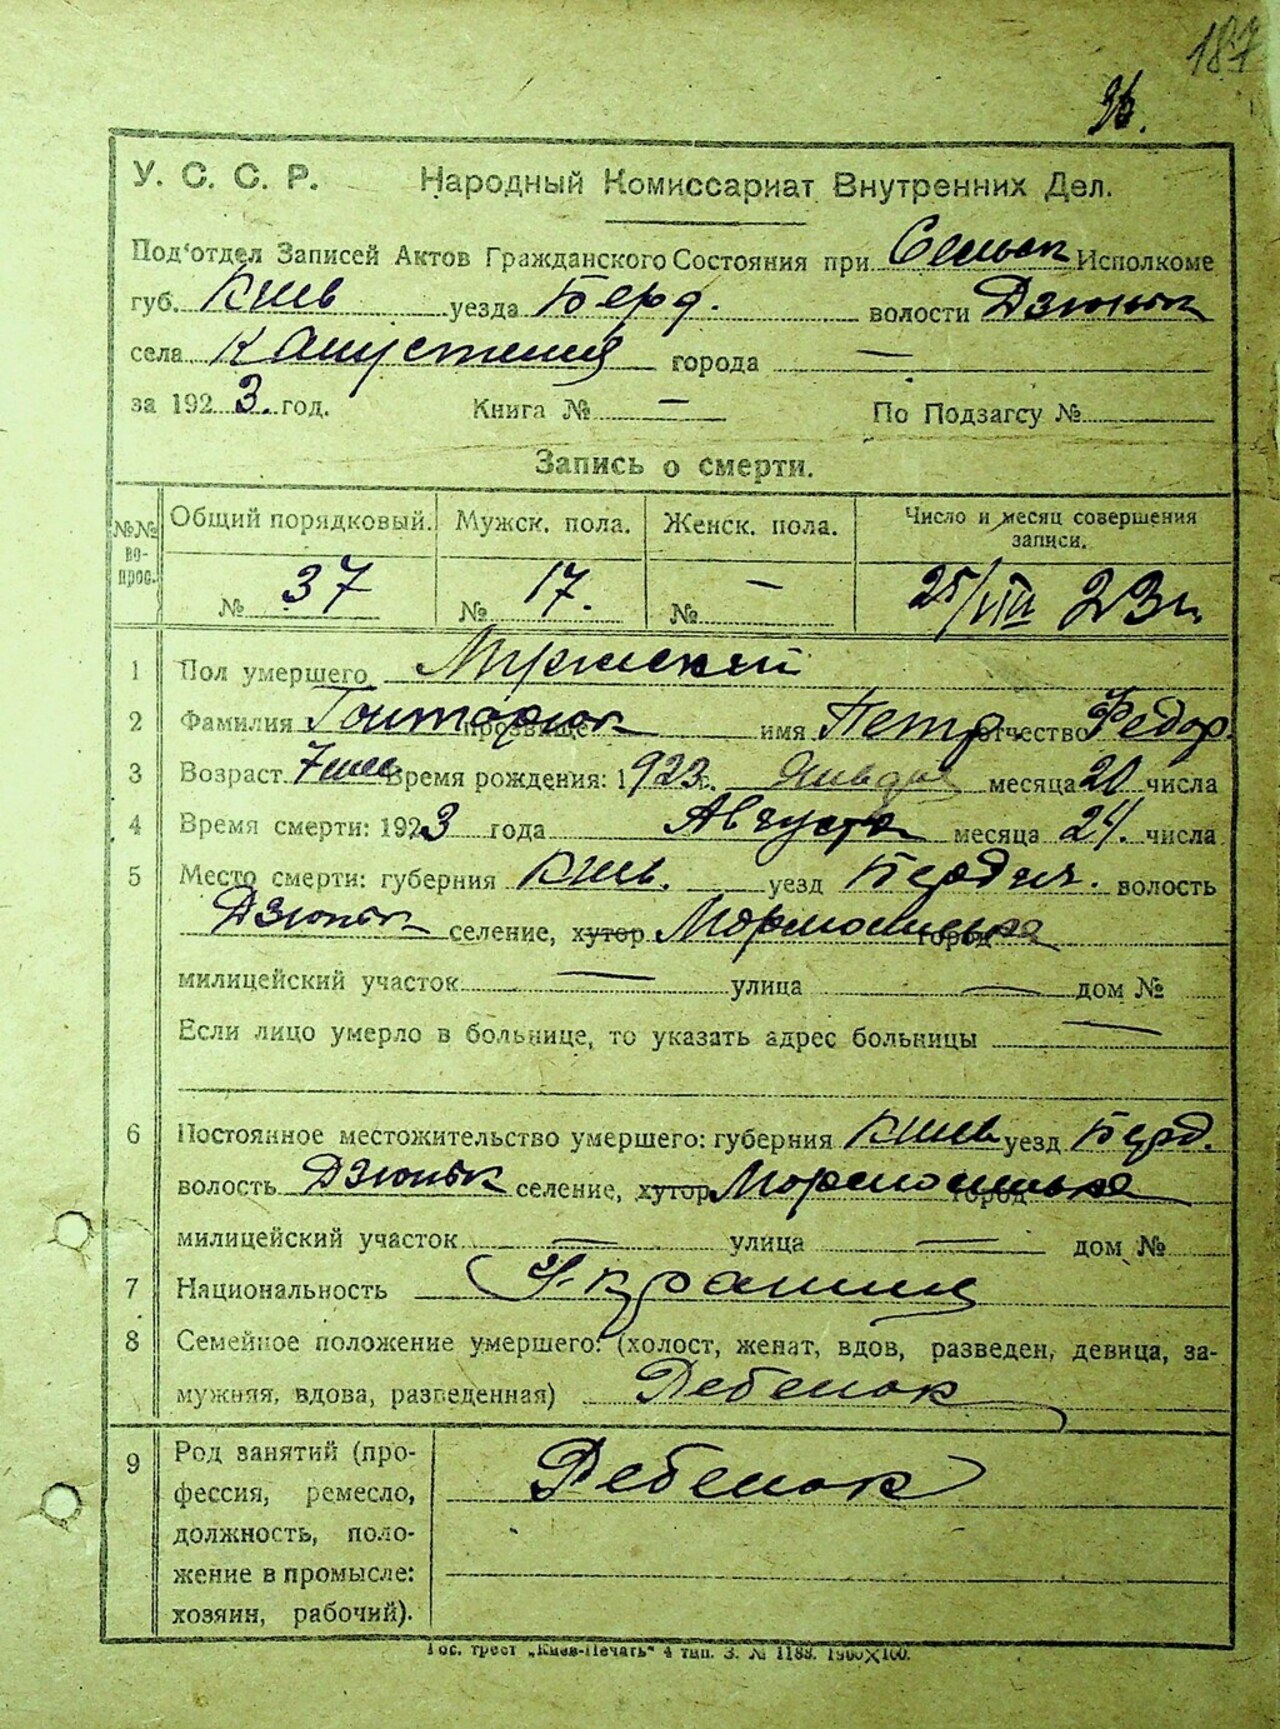 187
36.
У. С. С. Р. Народный Комиссариат Внутренних Дел.
Под'отдел Записей Актов Гражданского Состояния при Сельск Исполкоме
губ. Киев уезда Берд. волости Дзюньк
села Капустяния города —
за 1923. год. Книга № — По Подзагсу №
Запись о смерти.
№№ вопрос. Общий порядковый. Мужск. пола. Женск. пола. Число и месяц совершения
записи.
№ 37 № 17. № — 25/VIII 23
1 Пол умершего Мужский
2 Фамилия прозвище имя Петр отчество Федор.
3 Возраст 7 мес Время рождения: 1923 г. Января месяца 20 числа
4 Время смерти: 1923 года Августа месяца 24. числа
5 Место смерти: губерния Киев. уезд Бердич. волость
Дзюньк селение, хутор город
милицейский участок — улица — дом №
Если лицо умерло в больнице, то указать адрес больницы —
6 Постоянное местожительство умершего: губерния Киев уезд Берд.
волость Дзюньк селение, хутор город
милицейский участок — улица — дом №
7 Национальность Украинец
8 Семейное положение умершего: (холост, женат, вдов, разведен, девица, за-
мужняя, вдова, разведенная) Ребенок
9 Род занятий (про-
фессия, ремесло,
должность, поло-
жение в промысле:
хозяин, рабочий).
Ребенок
Гос. трест „Киев-Печать“ 4 тип. З. № 1183. 1900×100.